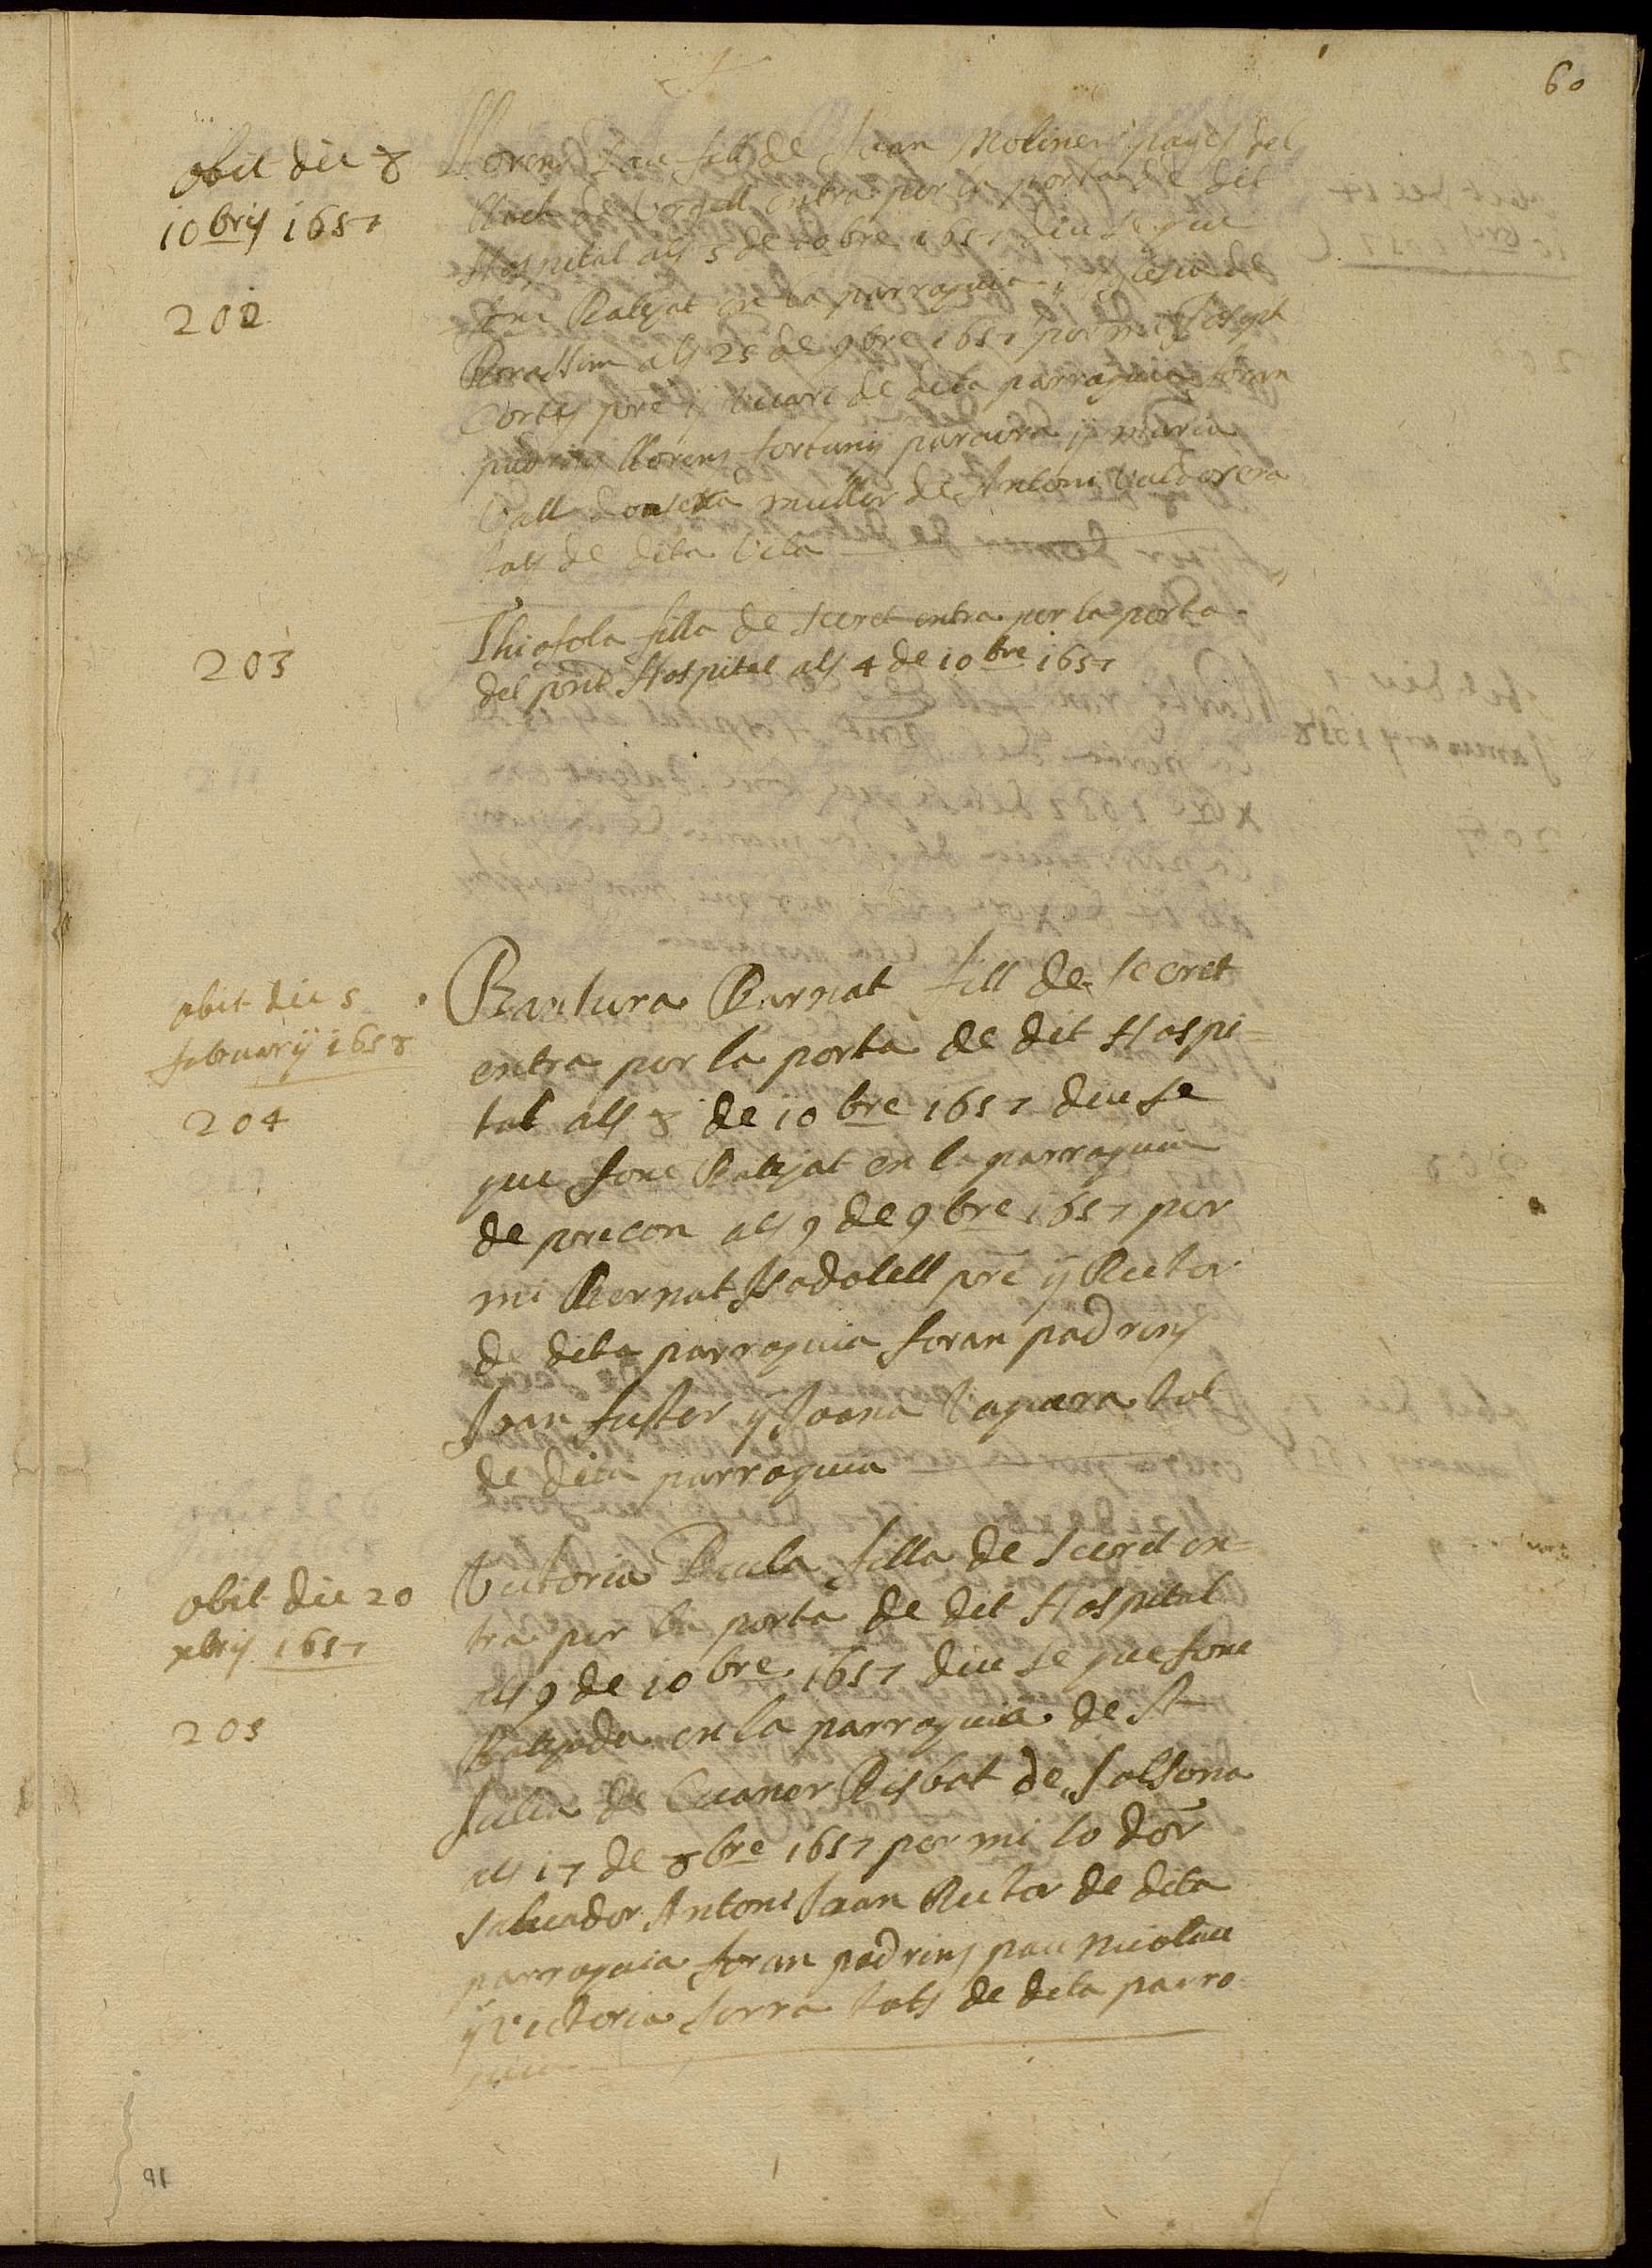 60
obit die 8
10bris 1657
202
Llorens Pau fill de Juan Moliner pages del
lloch de Vergell entra per la porta de dit
Hospital als 5 de 10bre 1657 diu se que
fonc Batejat en la parroquia iglesia de
als 25 de 9bre 1657 per mi Joseph
Cortes pre y Vicari de dita parroquia foran
padrins Llorens fortuny paraire y maria
Vall muller de Antoni
tots de dita Vila
203
Thiofola filla de Secret entra per la porta
del pnt Hospital als 4 de 10bre 1657
obit die 5
februarÿ 1658
204
Bantura Barnat fill de Secret
entra per la porta de dit Hospi=
tal als 8 de 10bre 1657 diu se
que fonc Batejat en la parroquia
de als 9 de 9bre 1657 per
mi Bernat Sadolell pre ÿ Rector
de dita parroquia foran padrins
Juan fuster ÿ Joana Saguera tot
de dita parroquia
obit die 20
xbris 1657
205
Victoria Paula filla de Secret en=
tra per la porta de dit Hospital
als 9 de 10bre 1657 diu se que fonc
Batejada en la parroquia de St
Julia de Bisbat de Solsona
als 17 de 8bre 1657 per mi lo dor
Saluador Antoni Juan Rector de dita
parroquia foran padrins pau nicolau
ÿ Victoria serra tots de dita parro
quia